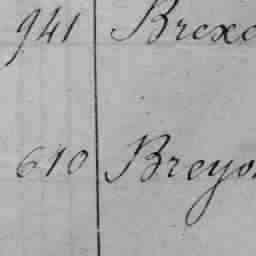 941 Brexe
610 Breyo